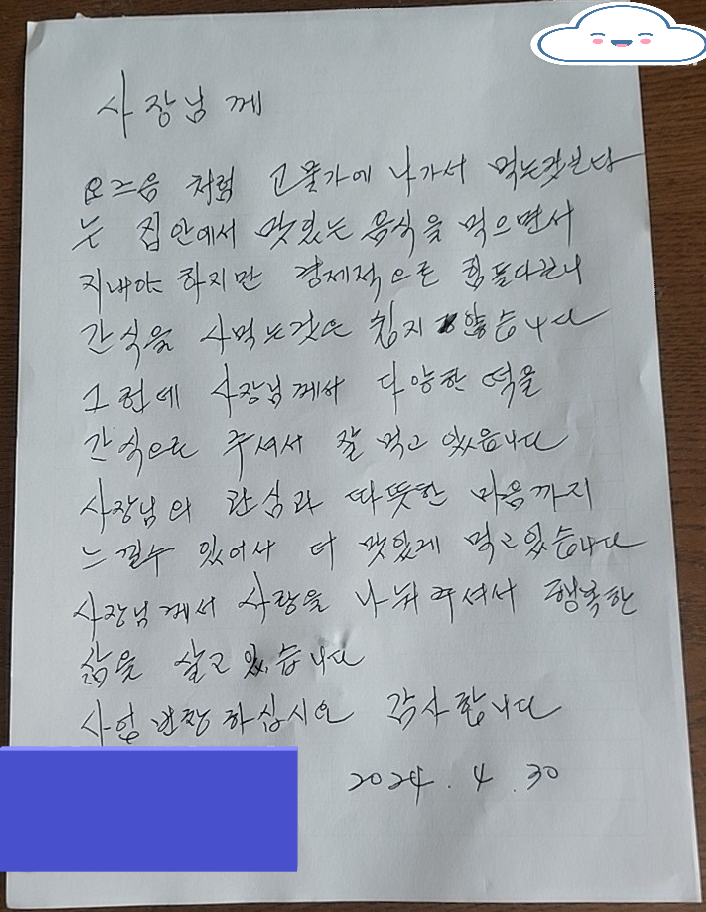 사장님께
요즈음 처럼 고물가에 나가서 먹는것보다
는 집안에서 맛있는 음식을 먹으면서
지내야 하지만 경제적으로 힘들다보니
간식을 사먹는것은 쉽지 않습니다
그런데 사장님께서 다양한 떡을
간식으로 주셔서 잘 먹고 있읍니다
사장님의 관심과 따뜻한 마음까지
느낄수 있어서 더 맛있게 먹고있습니다
사장님께서 사랑을 나눠주셔서 행복한
삶을 살고 있습니다
사업번창하십시요 감사합니다
2024. 4. 30